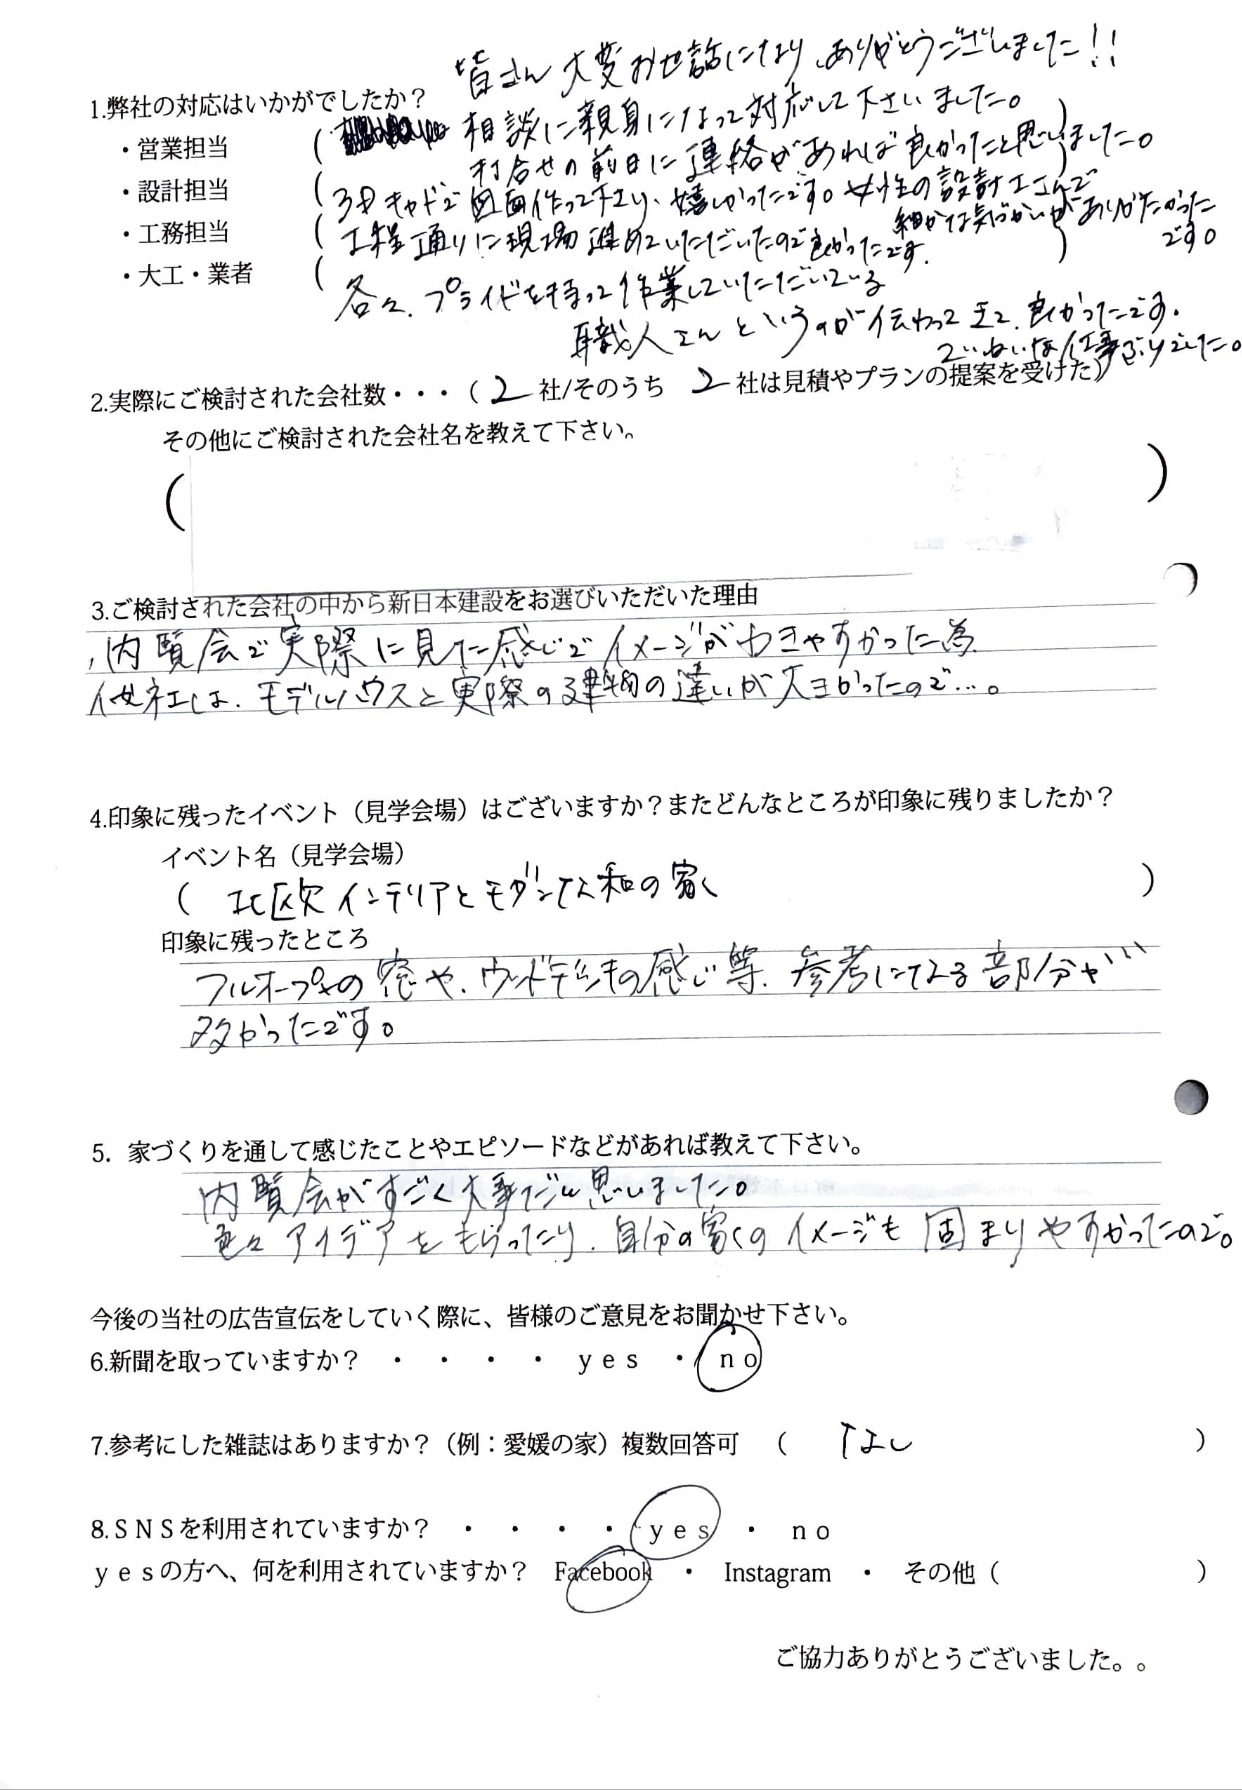 皆さん大変お世話になり、ありがとうございました!!
1.弊社の対応はいかがでしたか?
・営業担当 ( 相談に親身になって対応して下さいました。 )
打合せの前日に連絡があれば良かったと思いました。
・設計担当 ( 3Dキャドで図面作って下さり、嬉しかったです。女性の設計士さんで )
細かな気づかいがありがたかった
です。
・工務担当 ( 工程通りに現場進めていただいたので良かったです。 )
・大工・業者 ( 各々、プライドを持って作業していただいている
職人さんというのが伝わってきて、良かったです。
ていねいな仕事ぶりでした。
2.実際にご検討された会社数・・・( 2 社/そのうち 2 社は見積やプランの提案を受けた)
その他にご検討された会社名を教えて下さい。
( )
3.ご検討された会社の中から新日本建設をお選びいただいた理由
内覧会で実際に見た感じでイメージがわきやすかった為、
他社は、モデルハウスと実際の建物の違いが大きかったので…。
4.印象に残ったイベント(見学会場)はございますか?またどんなところが印象に残りましたか?
イベント名(見学会場)
( 北欧インテリアとモダンな和の家 )
印象に残ったところ
フルオープンの窓や、ウッドデッキの感じ等、参考になる部分が
多かったです。
5. 家づくりを通して感じたことやエピソードなどがあれば教えて下さい。
内覧会がすごく大事だと思いました。
色々アイデアをもらったり、自分の家のイメージも固まりやすかったので。
今後の当社の広告宣伝をしていく際に、皆様のご意見をお聞かせ下さい。
6.新聞を取っていますか? ・ ・ ・ ・ yes ・ no
7.参考にした雑誌はありますか?(例:愛媛の家)複数回答可 ( なし )
8.SNSを利用されていますか? ・ ・ ・ ・ yes ・ no
yesの方へ、何を利用されていますか? Facebook ・ Instagram ・ その他( )
ご協力ありがとうございました。。